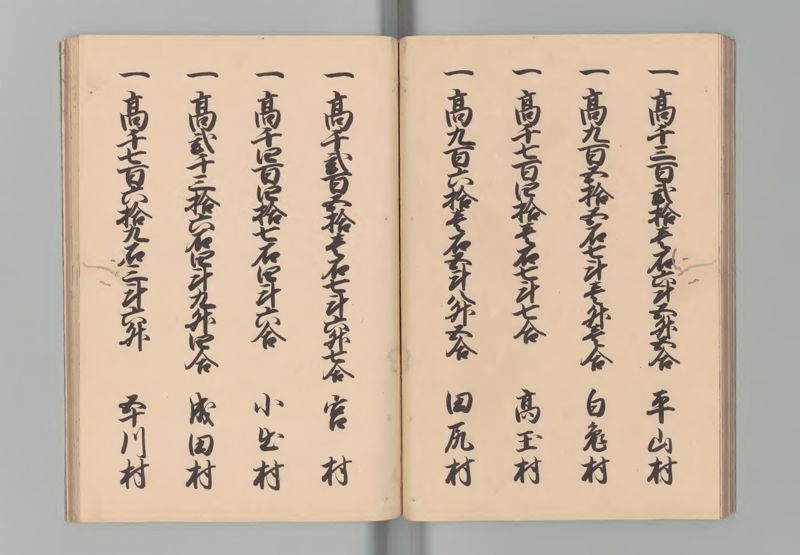 一 高千三百弐拾壱石六斗五升五合 平山村
一 高九百五拾五石七斗壱升壱合 白兎村
一 高千七百四拾壱石七斗七合 高玉村
一 高九百六拾壱石五斗八升五合 田尻村
一 高千弐百五拾壱石七斗六升七合 宮村
一 高千四百四拾七石四斗六合 小出村
一 高弐千三拾六石四斗九升四合 成田村
一 高千七百六拾九石三斗六升 平川村